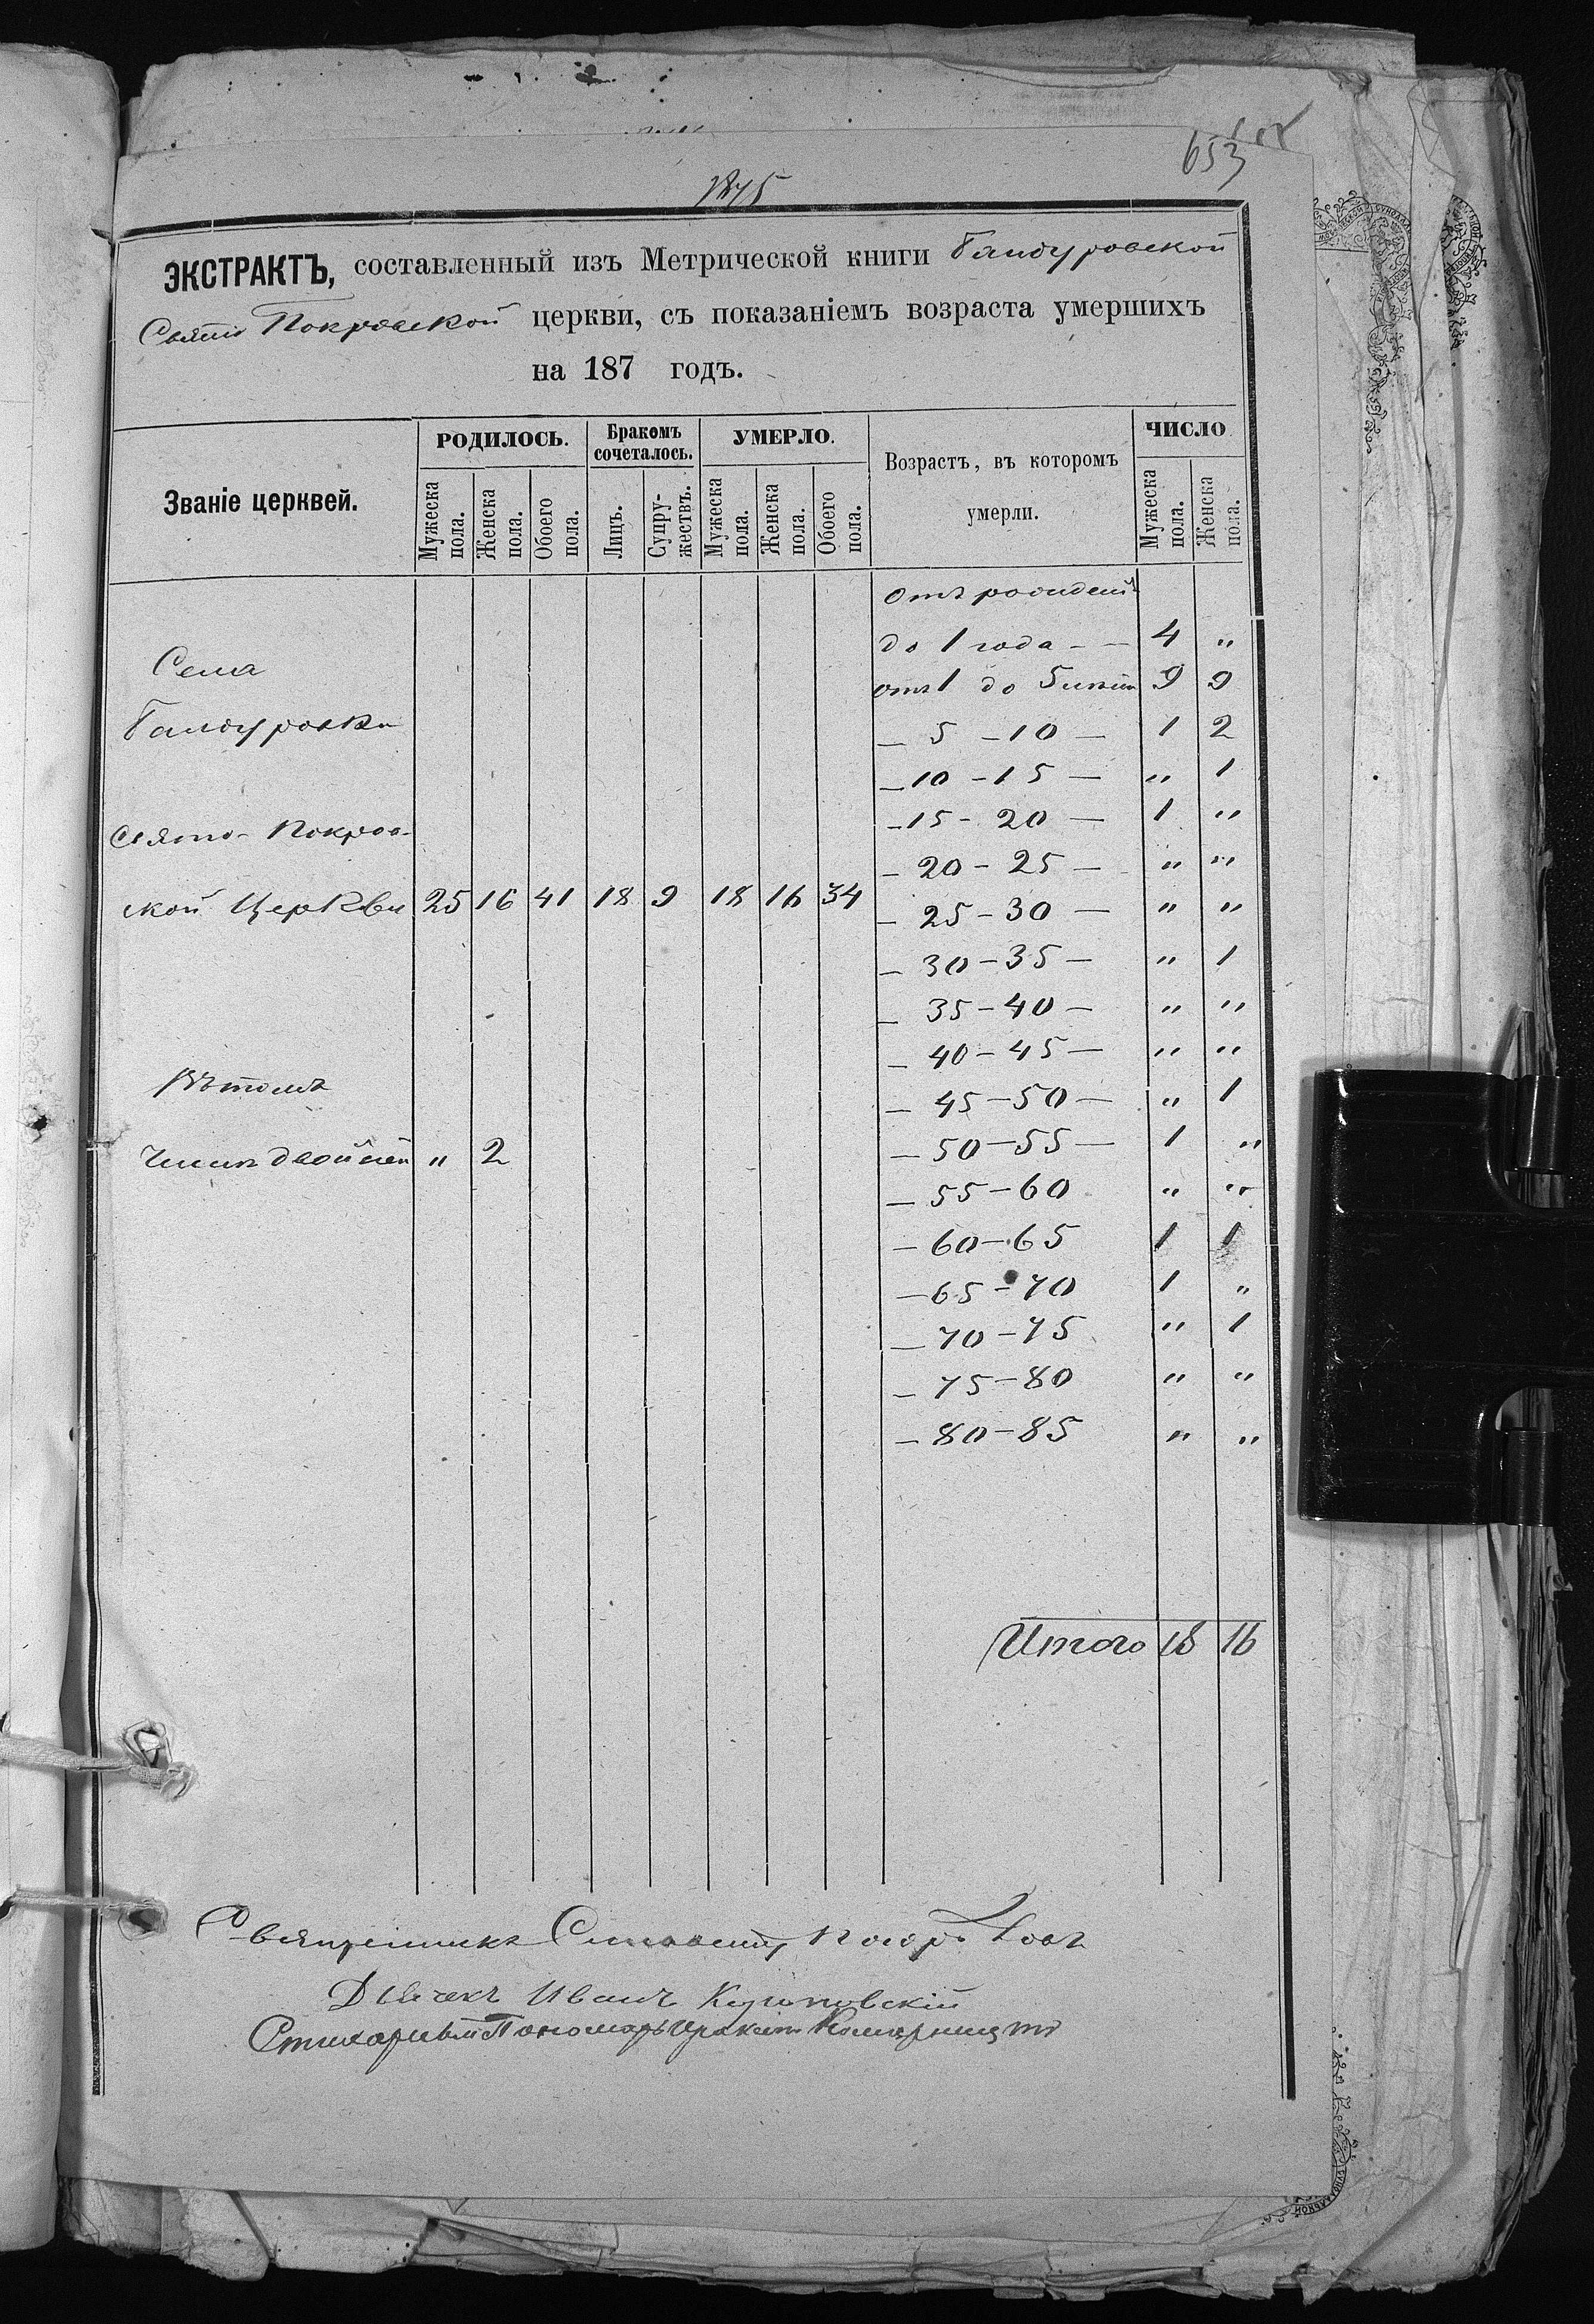 653
1875
ЭКСТРАКТЪ, составленный изъ Метрической книги Бандуровской
Свято Покровской церкви, съ показаніемъ возраста умершихъ
на 187 годъ.
Званіе церквей.
РОДИЛОСЬ.
Мужеска пола.
Женска пола.
Обоего пола.
Бракомъ сочеталось.
Лицъ.
Супружествъ.
УМЕРЛО.
Мужеска пола.
Женска пола.
Обоего пола.
Возрастъ, въ которомъ
умерли.
ЧИСЛО
Мужеска пола.
Женска пола.
Села
Бандуровки
Свято-Покров-
ской Церкви 25 16 41 18 9 18 16 34
Въ томъ
числѣ двойней „ 2
Отъ рожденія
до 1 года - — 4 „
отъ 1 до 5 лѣтъ 9 9
— 5 - 10 — 1 2
— 10 - 15 — „ 1
- 15 - 20 — 1 „
- 20 - 25 — „ „
— 25 - 30 — „ „
— 30 - 35 — „ 1
— 35 - 40 — „ „
— 40 - 45 — „ „
— 45 - 50 — „ 1
— 50 - 55 — 1 „
— 55 - 60 „ „
— 60 - 65 1 1
— 65 - 70 1 „
— 70 - 75 „ 1
— 75 - 80 „ „
— 80 - 85 „ „
Итого 18 16
Священникъ
Дьячекъ Иванъ
Стихарный Пономарь